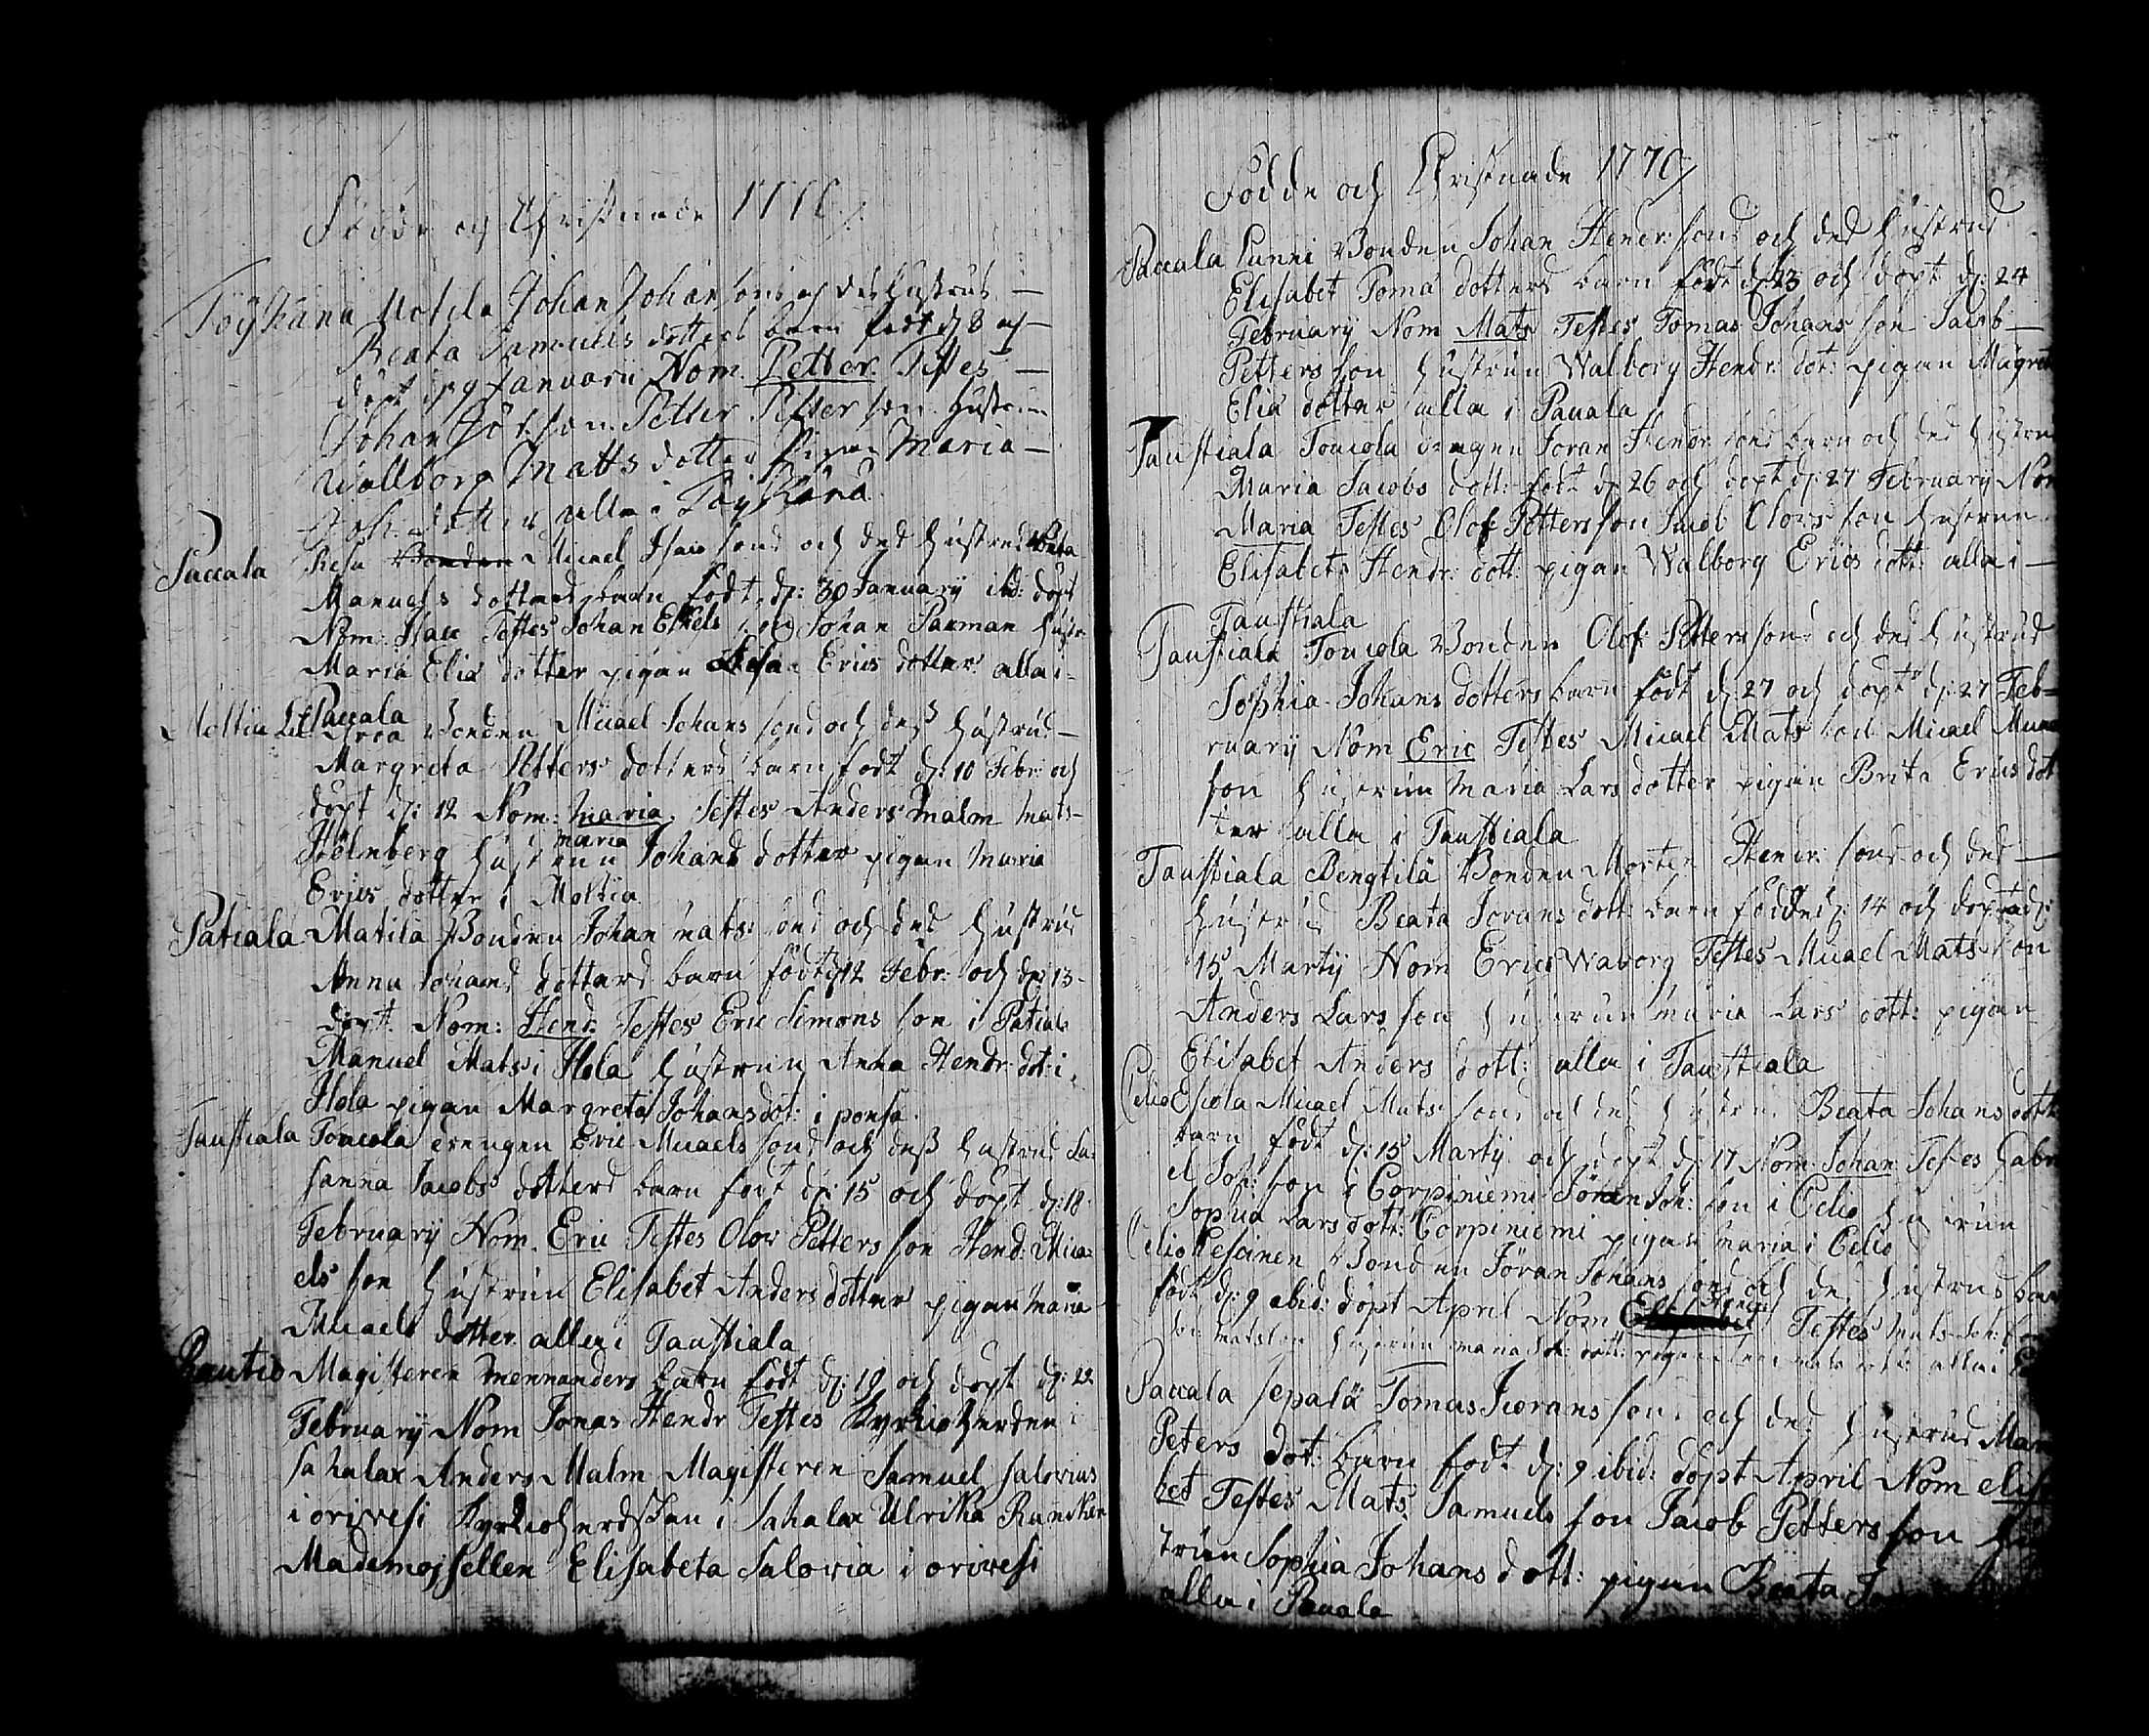 Födde och Christnade 1770
Töyhänä Matila Johan Johans sons och des hustrus
Beata Samuels dotters barn född d: 8 och
döpt d: 9 Januarii Nom. Petter. Testes
Johan son. Petter Petter son. Hustrun
Wallborg Matts dotter Pigan Maria
dotter alla i Töyhänä
Paccala Resu Bonden Micael Isacs sons och des hustrus Beata
Manuels dotters barn födt d: 30 January ibd: döpt
Nom: Isac Testes Johan Eskels son Johan Paxman hustr
Maria Elias dotter pigan Lisa Erics dotter alla i
Paccala
Moltia Bonden Micael Johans sons och dess hustrus
Margreta Petters dotters barn födt d: 10 Febr: och
döpt d: 12 Nom: Maria. Testes Anders Malm Mats
Holmberg hustrun Maria Johans dotter pigan Maria
Erics dotter i Moltia
Patiala Matila Bonden Johan Mats: sons och des hustrus
Anna Johans dotters barn födt d: 12 Febr: och d: 13
döpt. Nom: Hend: Testes Eric Simons son i Patiala
Manuel Mats i Hola hustrun Anna Hendr: dot: i
Hola pigan Margreta Johans dot: i ponsa.
Taustiala Toucola drengen Eric Micaels sons och dess hustrus Su
sanna Jacobs dotters barn födt d: 15 och döpt d: 18
February Nom. Eric Testes Olov Petters son Hend: Mica
els son hustrun Elisabet Anders dotter pigan Maria
Micaels dotter alla i Taustiala
Rautio Magisteren Mennanders barn födt d: 19 och döpt d: 22
February Nom Jonas Hendr Testes Kyrkioherden i
sahalax Anders Malm Magisteren Samuel Salovius
i orivesi Kyrkioherdskan i Sahalax Ulrika
Mademojsellen Elisabeta Salovia i orivesi
Födde och Christnade 1770
Paccala Punni Bonden Johan Hendr: sons och des hustrus
Elisabet Toma dotters barn födt d: 23 och döpt d: 24
February Nom Mats Testes Tomas Johans son Jacob
Petters son hustrun Walborg Hendr: dot: pigan Magret
Elia dotter alla i Pacala
Taustiala Toucola drengen Joran Hendr: sons barn och des hustru
Maria Jacobs dott: födt d: 26 och döpt d: 27 February Nom
Maria Testes Olof Petters son Jacob Olovs son hustrun
Elisabet Hendr: dott: pigan Walborg Erics dott: alla i
Taustiala
Taustiala Toucola Bonden Olof Petters sons och des hustrus
Sophia Johans dotters barn födt d: 27 och döpt d: 27 Feb
ruary Nom Eric Testes Micael Mats son Micael
son hustrun Maria Lars dotter pigan Brita Erics dot
ter alla i Taustiala
Taustiala Bengtilä Bonden Morten Hendr: sons och des
hustrus Beata Jorans dott: barn födde d: 14 och döpta d:
15 Martij Nom Eric Waborg Testes Micael Mats son
Anders Lars son hustrun Maria Lars dott: pigan
Elisabet Anders dott: alla i Taustiala
Celio Escola Micael Mats: sons och des hustru Beata Johans dott:
barn födt d: 15 Martij och döpt d: 17 Nom: Johan Testes Gabri
el Joh: son i Corpiniemi Jöran Joh: son i Celio hustrun
Sophia Lars dott: Corpiniemi pigan Maria i Celio
Celio Bonden Jöran Johans sons och des hustrus barn
födt d: 9 ibid: döpt April Nom Testes Mats Joh:
Matsson hustrun Maria Joh: dott: pigan alla i
Paccala sepalä Tomas Jorans son: och des hustrus
Peters dot: barn födt d: 9 ibid: döpt April Nom elisa
bet Testes Mats Samuels son Jacob Petters son hus
trun Sophia Johans dott: pigan Beata
alla i Pacala